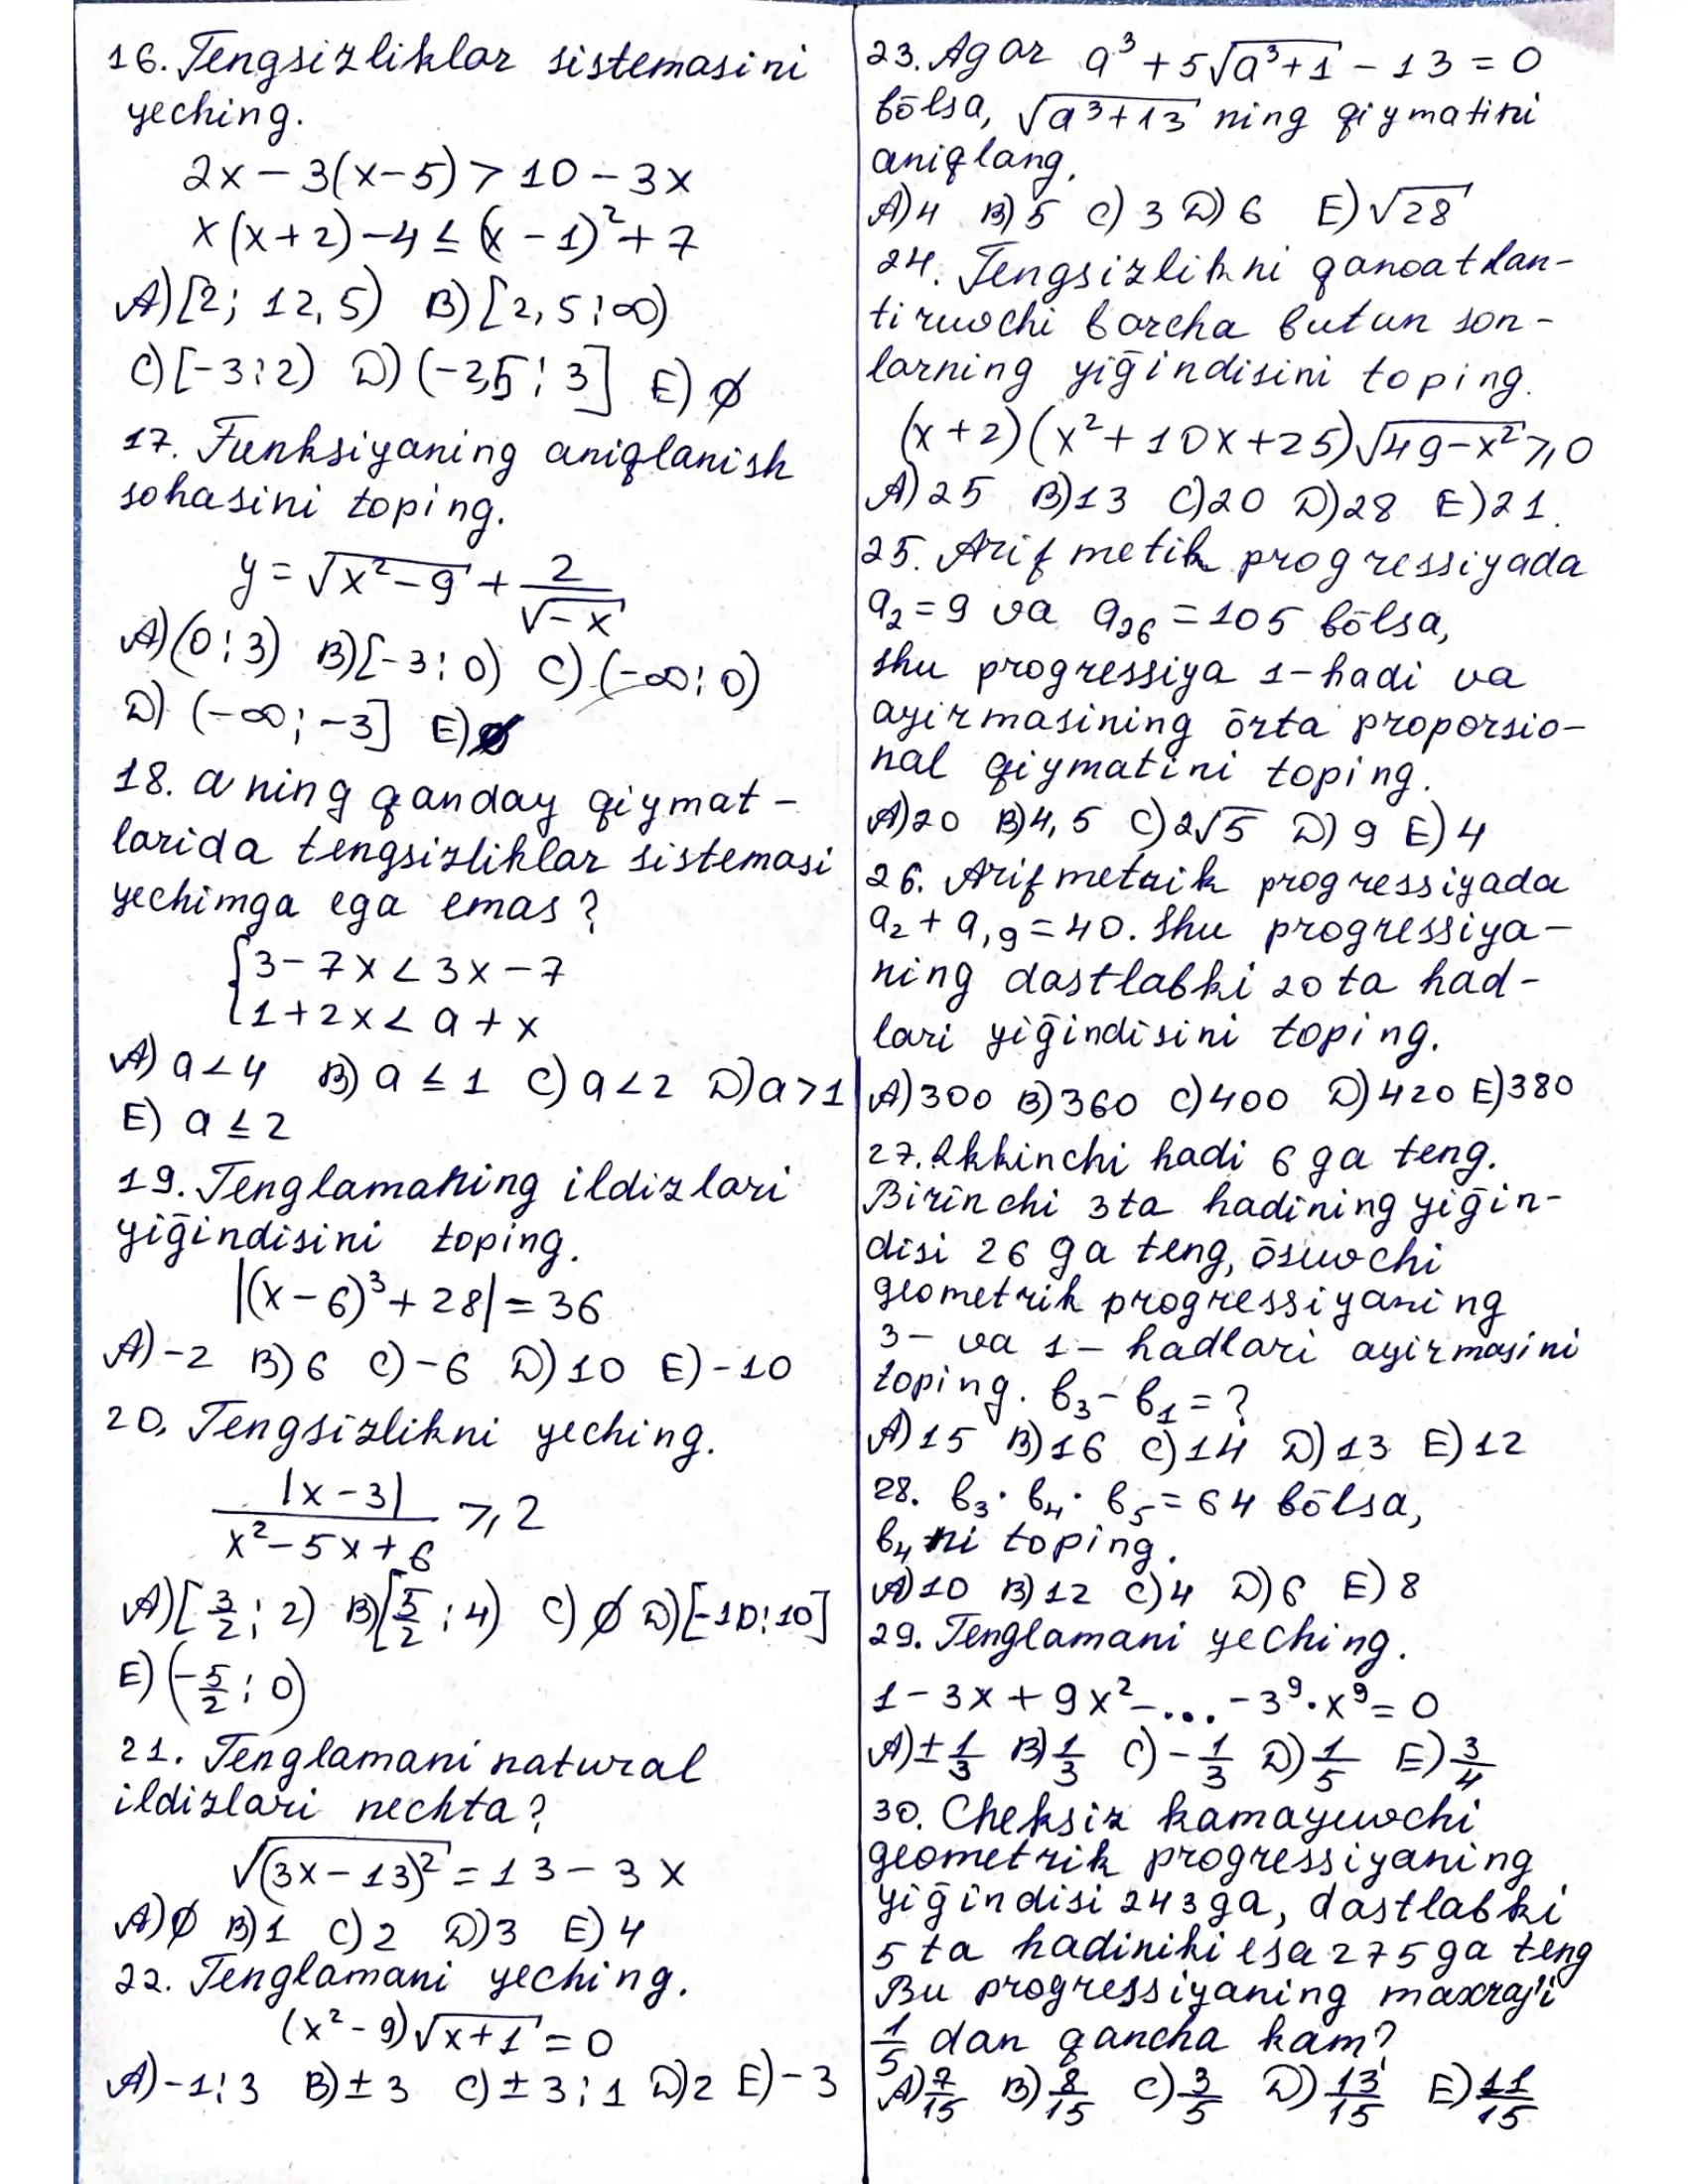 16. Tengsizliklar sistemasini
yeching.
2x – 3(x–5) > 10 – 3x
x(x+2) – 4 ≤ (x – 1)² + 7
A) [2; 12,5) B) [2,5; ∞)
C) [-3; 2) D) (-2,5; 3] E) ∅
17. Funksiyaning aniqlanish
sohasini toping.
y = √(x² – 9) + 2/√(–x)
A) (0; 3) B) [-3; 0) C) (-∞; 0)
D) (-∞; -3] E) ∅
18. a ning qanday qiymat –
larida tengsizliklar sistemasi
yechimga ega emas?
{3 – 7x < 3x – 7
1 + 2x < a + x
A) a < 4 B) a ≤ 1 C) a < 2 D) a > 1
E) a ≤ 2
19. Tenglamaning ildizlari
yiḡindisini toping.
|(x – 6)³ + 28| = 36
A) -2 B) 6 C) -6 D) 10 E) -10
20. Tengsizlikni yeching.
|x – 3| / (x² – 5x + 6) ≥ 2
A) [3/2; 2) B) [5/2; 4) C) ∅ D) [-10; 10]
E) (-5/2; 0)
21. Tenglamani natural
ildizlari nechta?
√(3x – 13)² = 13 – 3x
A) ∅ B) 1 C) 2 D) 3 E) 4
22. Tenglamani yeching.
(x² – 9)√(x+1) = 0
A) -1; 3 B) ± 3 C) ± 3; 1 D) 2 E) -3
23. Agar a³ + 5√(a³+1) – 13 = 0
bōlsa, √(a³+13) ning qiymatini
aniqlang.
A) 4 B) 5 C) 3 D) 6 E) √28
24. Tengsizlikni qanoatlan–
tiruvchi barcha butun son –
larning yiḡindisini toping.
(x+2)(x² + 10x + 25)√(49–x²) ≥ 0
A) 25 B) 13 C) 20 D) 28 E) 21.
25. Arifmetik progressiyada
a₂ = 9 va a₂₆ = 105 bōlsa,
shu progressiya 1-hadi va
ayirmasining ōrta proporsio–
nal qiymatini toping.
A) 20 B) 4,5 C) 2√5 D) 9 E) 4
26. Arifmetik progressiyada
a₂ + a₁₉ = 40. Shu progressiya –
ning dastlabki 20 ta had –
lari yiḡindisini toping.
A) 300 B) 360 C) 400 D) 420 E) 380
27. Ikkinchi hadi 6 ga teng.
Birinchi 3 ta hadining yiḡin–
disi 26 ga teng, ōsuvchi
geometrik progressiyaning
3 – va 1 – hadlari ayirmasini
toping. b₃ – b₁ = ?
A) 15 B) 16 C) 14 D) 13 E) 12
28. b₃ · b₄ · b₅ = 64 bōlsa,
b₄ ni toping.
A) 10 B) 12 C) 4 D) 6 E) 8
29. Tenglamani yeching.
1 – 3x + 9x² – ... – 3⁹ · x⁹ = 0
A) ± 1/3 B) 1/3 C) – 1/3 D) 1/5 E) 3/4
30. Cheksiz kamayuvchi
geometrik progressiyaning
yiḡindisi 243 ga, dastlabki
5 ta hadiniki esa 275 ga teng
Bu progressiyaning maxraji
1/5 dan qancha kam?
A) 7/15 B) 8/15 C) 3/5 D) 13/15 E) 11/15